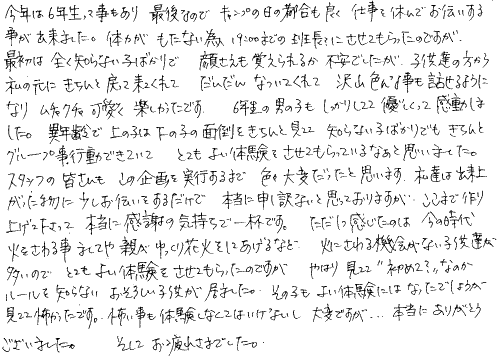 今年は6年生って事もあり 最後なので キャンプの日の都合も良く 仕事を休んでお伝いする
事が出来ました。体力が もたない為、19:00までの班長にさせてもらったのですが、
最初は全く知らない子ばかりで 顔さえも覚えられるか不安でしたが、子供達の方から
私の元に きちんと戻って来てくれて だんだんなついてくれて 沢山色んな事も話せるように
なり ムチャクチャ可愛く楽しかったです。 6年生の男の子も しっかりしてて優しくって感動しま
した。異年齢で上の子は下の子の面倒をきちんと見てて 知らない子ばかりでも きちんと
グループ事行動できていて とてもよい体験をさせてもらっているなあと思いました。
スタッフの皆さんも この企画を実行するまで 色々大変だったと思います。私達は出来上
がった物に少しお伝いをするだけで 本当に申し訳ないと思っておりますが、ここまで作り
上げて下さって 本当に感謝の気持ちで一杯です。 ただ1つ感じたのは 今の時代
火をされる事ましてや 親が ゆっくり花火をしてあげるなど 火にされる機会がない子供達が
多いので とてもよい体験をさせてもらったのですが やはり見てて"初めて?"なのか
ルールを知らない おそろしい子供が居ました。その子も よい体験にはなったでしょうが
見てて怖かったです。怖い事も体験しなくてはいけないし 大変ですが… 本当にありがとう
ございました。 そして お疲れさまでした。